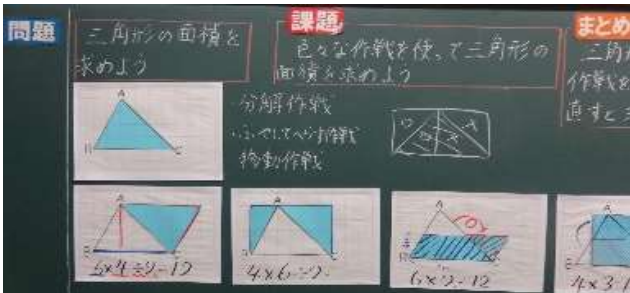 問題
三角形の面積を
求めよう
課題
色々な作戦を使って三角形の
面積を求めよう
まとめ
三角
作戦を
直すと
・分解作戦
・ふやしてへらす作戦
移動作戦
A
B
C
A
B
C
6×4÷2=12
A
4×6÷2
A
B
6×2=12
A
4×3